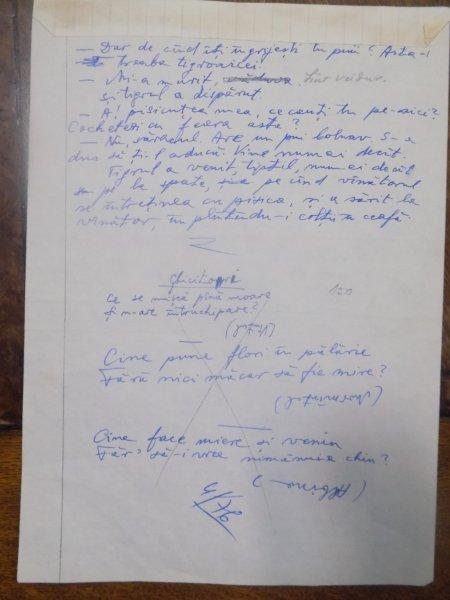 — Dar de cînd îți îngrijești tu puii? Asta-i
treaba tigroaicei.
— Mi-a murit, sînt văduv.
și tigrul a dispărut.
— A! pisicuțea mea, ce cauți tu pe-aici?
Cochetezi cu fiara asta?
— Nu, săracul. Are un pui bolnav. S-a
dus să ți-l aducă. Vine numai decît.
Tigrul a venit, tiptil, numai decît
pe la spate, pe cînd vînătorul
se întreținea cu pisica, și a sărit la
vînător, împlîntîndu-i colții în ceafă
Ghicitori
Ce se mișcă pînă moare
Și n-are întruchipare?
Cine pune flori în pălărie
Fără nici măcar să fie mire?
Cine face miere și venin
Făr' să-i vrea nimănuia chin?
(Albina)